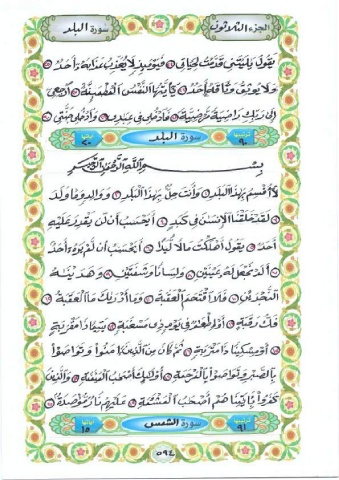 الجزء الثلاثون سورة البلد
يقول يليتنى قدمت لحياتى فيومئذ لا يعذب عذابه أحد
ولا يوثق وثاقه أحد يأيتها النفس المطمئنة ارجعى
إلى ربك راضية مرضية فادخلى فى عبدى وادخلى جنتى
ترتيبها ٩٠ سورة البلد آياتها ٢٠
بسم الله الرحمن الرحيم
لا أقسم بهذا البلد وأنت حل بهذا البلد ووالد وما ولد
لقد خلقنا الإنسن فى كبد أيحسب أن لن يقدر عليه
أحد يقول أهلكت مالا لبدا أيحسب أن لم يره أحد
ألم نجعل له عينين ولسانا وشفتين وهدينه
النجدين فلا اقتحم العقبة وما أدرىك ما العقبة
فك رقبة أو إطعم فى يوم ذى مسغبة يتيما ذا مقربة
أو مسكينا ذا متربة ثم كان من الذين ءامنوا وتواصوا
بالصبر وتواصوا بالمرحمة أولئك أصحب الميمنة والذين
كفروا بأيتنا هم أصحب المشئمة عليهم نار مؤصدة
ترتيبها ٩١ سورة الشمس آياتها ١٥
٥٩٤